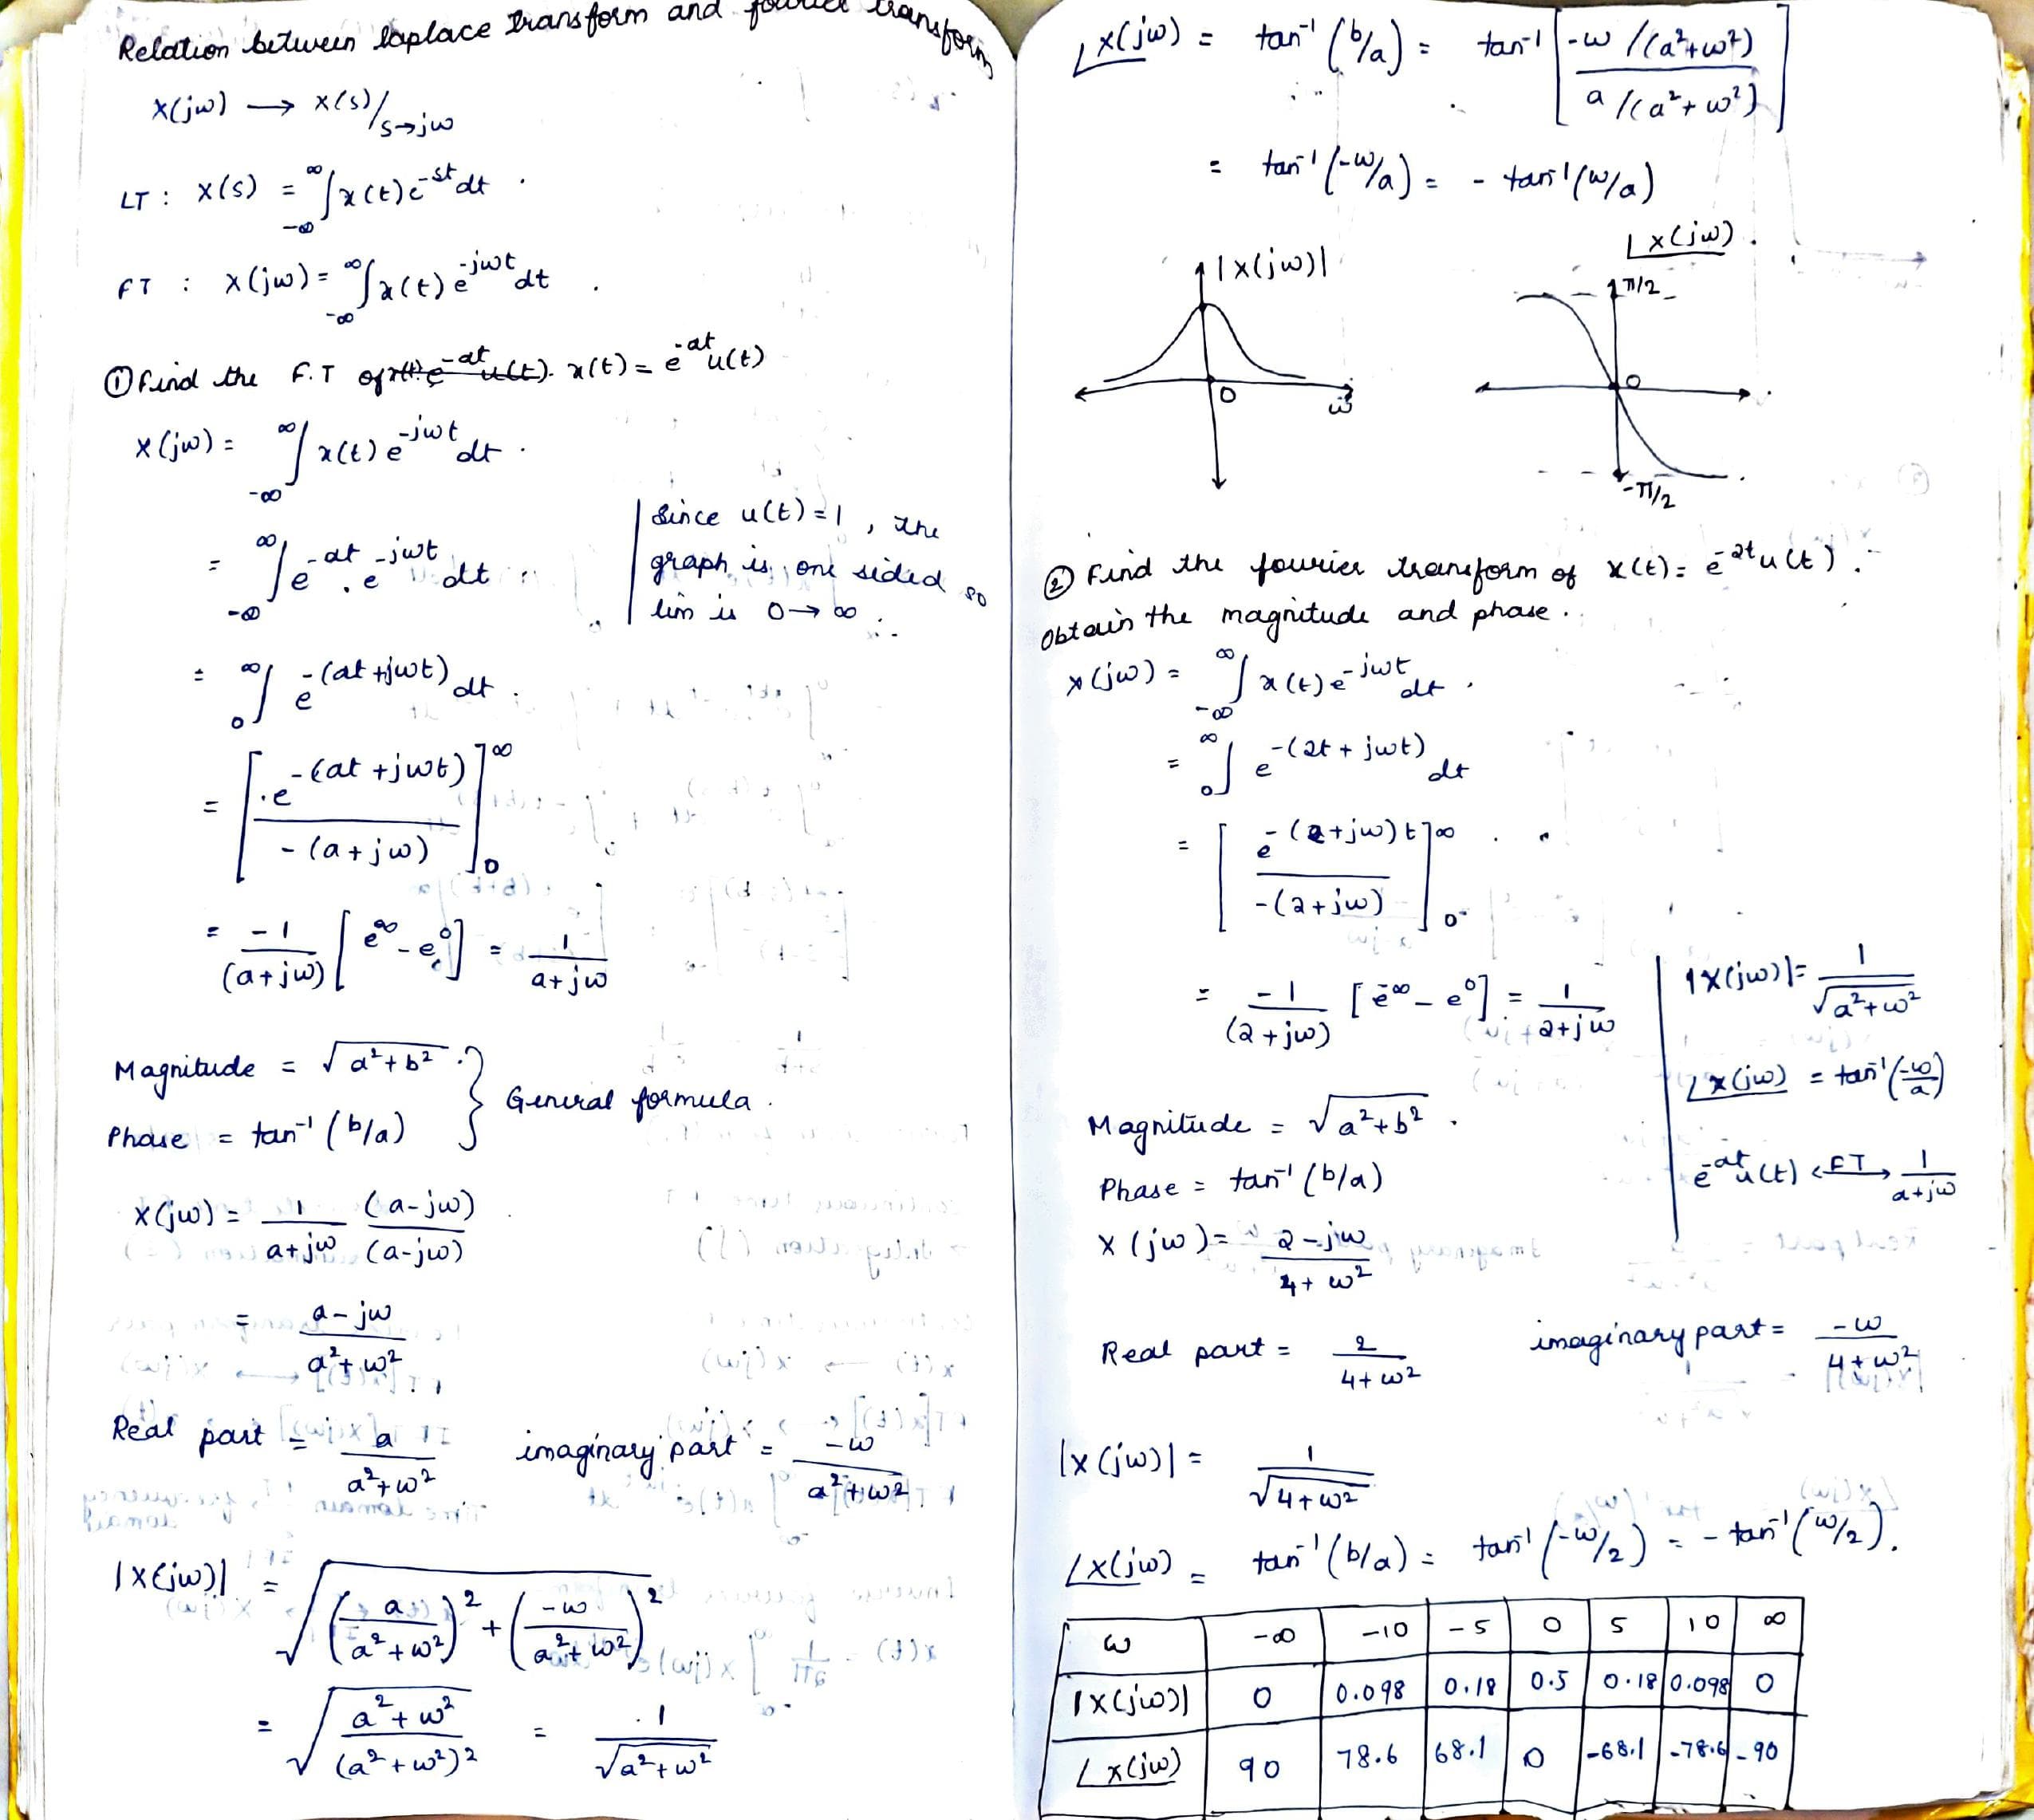 Relation between laplace transform and fourier transform
X(jω) → X(s)/s→jω
LT : X(s) = ∞∫-∞ x(t) e^-st dt .
FT : X(jω) = ∞∫-∞ x(t) e^-jωt dt .
① Find the F.T of x(t) e^-at u(t). x(t) = e^-at u(t)
X(jω) = ∞∫-∞ x(t) e^-jωt dt .
= ∞∫-∞ e^-at . e^-jωt dt
since u(t) = 1 , the
graph is one sided so
lim is 0 → ∞
= ∞∫0 e^-(at+jωt) dt .
= [ e^-(at+jωt) / -(a+jω) ]∞0
= -1/(a+jω) [ e^∞ - e^0 ] = 1/a+jω
Magnitude = √a²+b² .
Phase = tan⁻¹ (b/a)
} General formula .
X(jω) = 1/a+jω (a-jω)/(a-jω)
= a-jω / a²+ω²
Real part = a / a²+ω² imaginary part = -ω / a²+ω²
|X(jω)| = √(a/a²+ω²)² + (-ω/a²+ω²)²
= √a²+ω²/(a²+ω²)² = 1/√a²+ω²
∠X(jω) = tan⁻¹ (b/a) = tan⁻¹ [ -ω/(a²+ω²) / a/(a²+ω²) ]
= tan⁻¹ (-ω/a) = - tan⁻¹ (ω/a)
|X(jω)|
0
ω
∠X(jω) .
π/2
0
-π/2
② Find the fourier transform of x(t) = e^-2t u(t) .
Obtain the magnitude and phase .
X(jω) = ∞∫-∞ x(t) e^-jωt dt .
= ∞∫0 e^-(2t+jωt) dt
= [ e^-(2+jω)t / -(2+jω) ]∞0
= -1/(2+jω) [ e^-∞ - e^0 ] = 1/2+jω
|X(jω)| = 1/√a²+ω²
∠X(jω) = tan⁻¹ (-ω/a)
e^-at u(t) ←FT→ 1/a+jω
Magnitude = √a²+b² .
Phase = tan⁻¹ (b/a)
X(jω) = 2-jω / 4+ω²
Real part = 2 / 4+ω² imaginary part = -ω / 4+ω²
|X(jω)| = 1/√4+ω²
∠X(jω) = tan⁻¹ (b/a) = tan⁻¹ (-ω/2) = - tan⁻¹ (ω/2).
ω -∞ -10 -5 0 5 10 ∞
|X(jω)| 0 0.098 0.18 0.5 0.18 0.098 0
∠X(jω) 90 78.6 68.1 0 -68.1 -78.6 -90